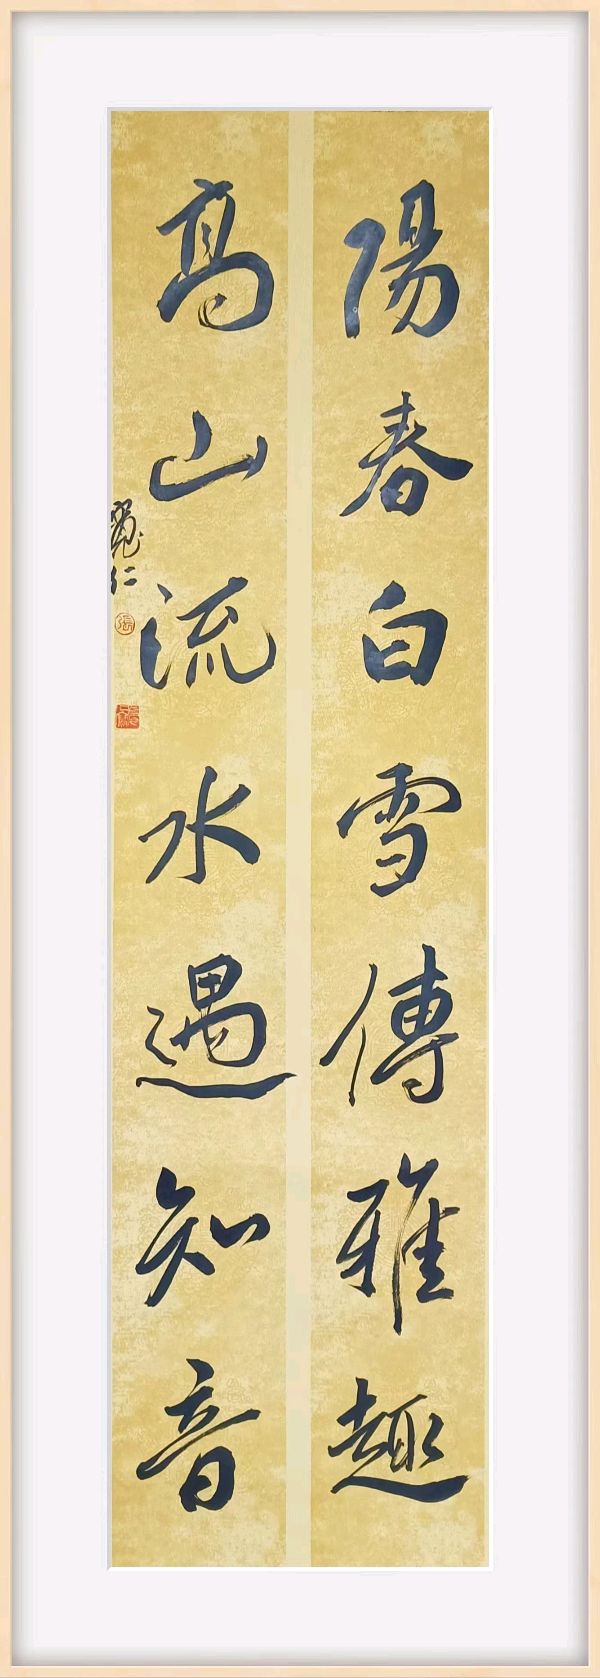 陽春白雪傳雅趣
高山流水遇知音